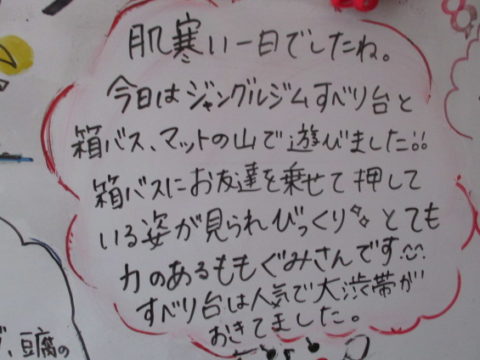 肌寒い一日でしたね。
今日はジャングルジムすべり台と
箱バス、マットの山で遊びました!!
箱バスにお友達を乗せて押して
いる姿が見られびっくり✨とても
力のあるももぐみさんです☺
すべり台は人気で大渋帯が
おきてました。
、豆腐の